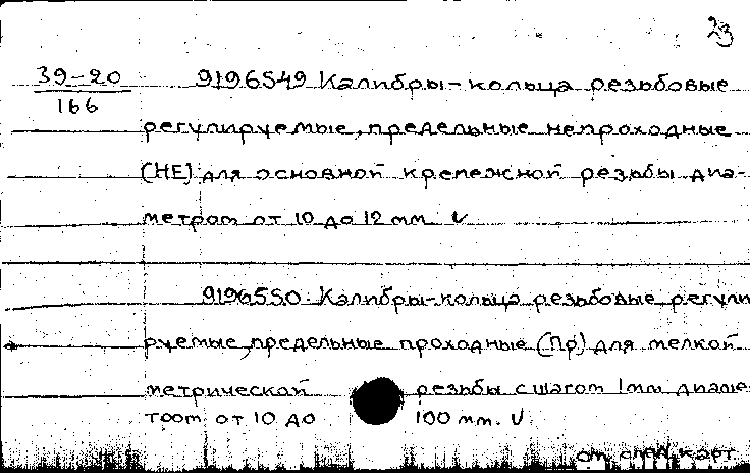 23
39-20 9196549 Калибры-кольца резьбовые
166
регулируемые, предельные непроходные
(НЕ) для основной крепежной резьбы диа-
метром от 10 до 12 мм. V
9196550. Калибры-кольца резьбовые регули
руемые, предельные проходные (Пр.) для мелкой
метрической резьбы с шагом 1мм диаме
тром от 10 до 100 мм. V
см. карт.